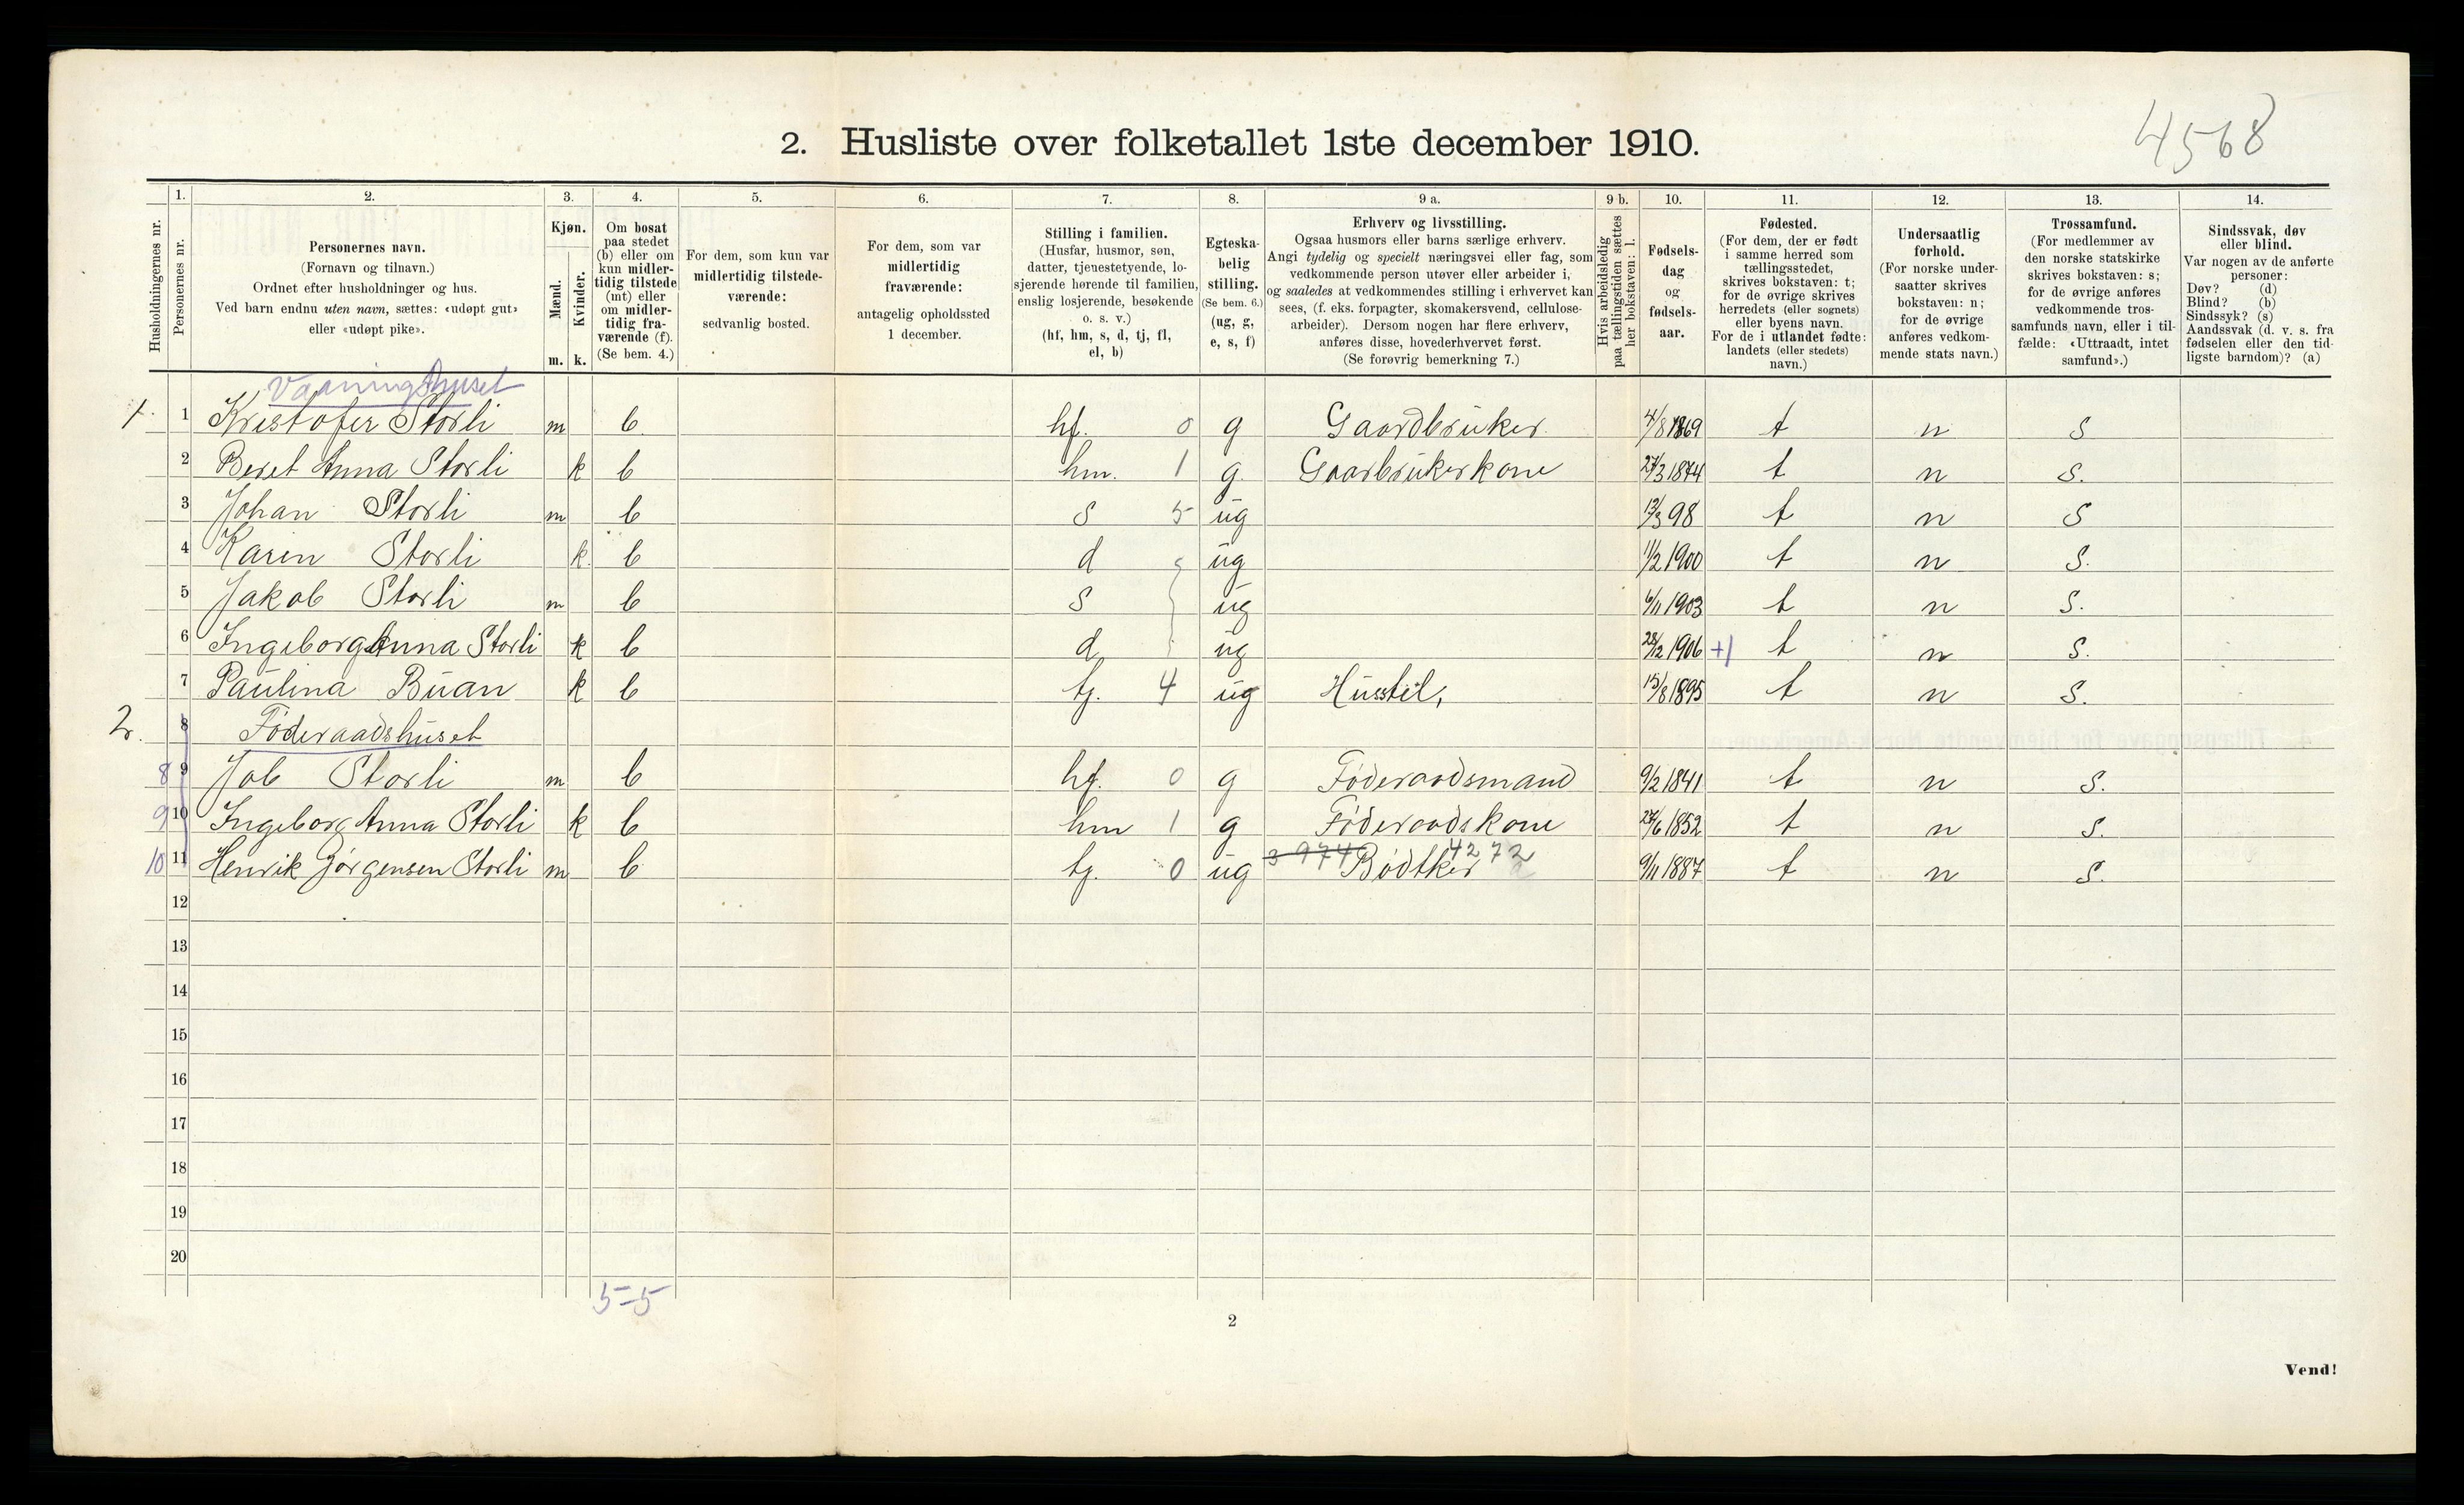 4568
2. Husliste over folketallet 1ste december 1910.
Husholdningernes nr.
1. Personernes nr.
2. Personernes navn. (Fornavn og tilnavn.) Ordnet efter husholdninger og hus. Ved barn endnu uten navn, sættes: «udøpt gut» eller «udøpt pike».
3. Kjøn. Mænd. m. Kvinder. k.
4. Om bosat paa stedet (b) eller om kun midlertidig tilstede (mt) eller om midlertidig fraværende (f). (Se bem. 4.)
5. For dem, som kun var midlertidig tilstedeværende: sedvanlig bosted.
6. For dem, som var midlertidig fraværende: antagelig opholdssted 1 december.
7. Stilling i familien. (Husfar, husmor, søn, datter, tjenestetyende, losjerende hørende til familien, enslig losjerende, besøkende o. s. v.) (hf, hm, s, d, tj, fl, el, b)
8. Egteskabelig stilling. (Se bem. 6.) (ug, g, e, s, f)
9 a. Erhverv og livsstilling. Ogsaa husmors eller barns særlige erhverv. Angi tydelig og specielt næringsvei eller fag, som vedkommende person utøver eller arbeider i, og saaledes at vedkommendes stilling i erhvervet kan sees, (f. eks. forpagter, skomakersvend, cellulose-arbeider). Dersom nogen har flere erhverv, anføres disse, hovederhvervet først. (Se forøvrig bemerkning 7.)
9 b. Hvis arbeidsledig paa tællingstiden sættes her bokstaven: l.
10. Fødselsdag og fødselsaar.
11. Fødested. (For dem, der er født i samme herred som tællingsstedet, skrives bokstaven: t; for de øvrige skrives herredets (eller sognets) eller byens navn. For de i utlandet fødte: landets (eller stedets) navn.)
12. Undersaatlig forhold. (For norske undersaatter skrives bokstaven: n; for de øvrige anføres vedkommende stats navn.)
13. Trossamfund. (For medlemmer av den norske statskirke skrives bokstaven: s; for de øvrige anføres vedkommende trossamfunds navn, eller i tilfælde: «Uttraadt, intet samfund».)
14. Sindssvak, døv eller blind. Var nogen av de anførte personer: Døv? (d) Blind? (b) Sindssyk? (s) Aandssvak (d. v. s. fra fødselen eller den tidligste barndom)? (a)
Vaaningshuset
1. 1 Kristofer Storli m b hf. 0 g Gaardbruker 4/8 1869 t n s
2 Beret Anna Storli k b hm. 1 g. Gaarbrukerkone 27/3 1874 t n s.
3 Johan Storli m b s 5 ug 13/3 98 t n s
4 Karen Storli k. b d ug 11/2 1900 t n s.
5 Jakob Storli m b s ug 6/11 1903 t n s.
6 Ingeborg Anna Storli k b d ug 28/12 1906 +1 t n s.
7 Paulina Buan k b tj. 4 ug Husstel, 15/8 1895 t n s.
2. 8 Føderaadshuset
8 9 Job Storli m b hf. 0 g Føderaadsmand 9/2 1841 t n s.
9 10 Ingeborg Anna Storli k b hm 1 g Føderaadskone 24/6 1852 t n s.
10 11 Henrik Jørgensen Storli m b tj. 0 ug 3974 Bødtker 4272 9/11 1887 t n s.
12
13
14
15
16
17
18
19
20
5-5
2
Vend!